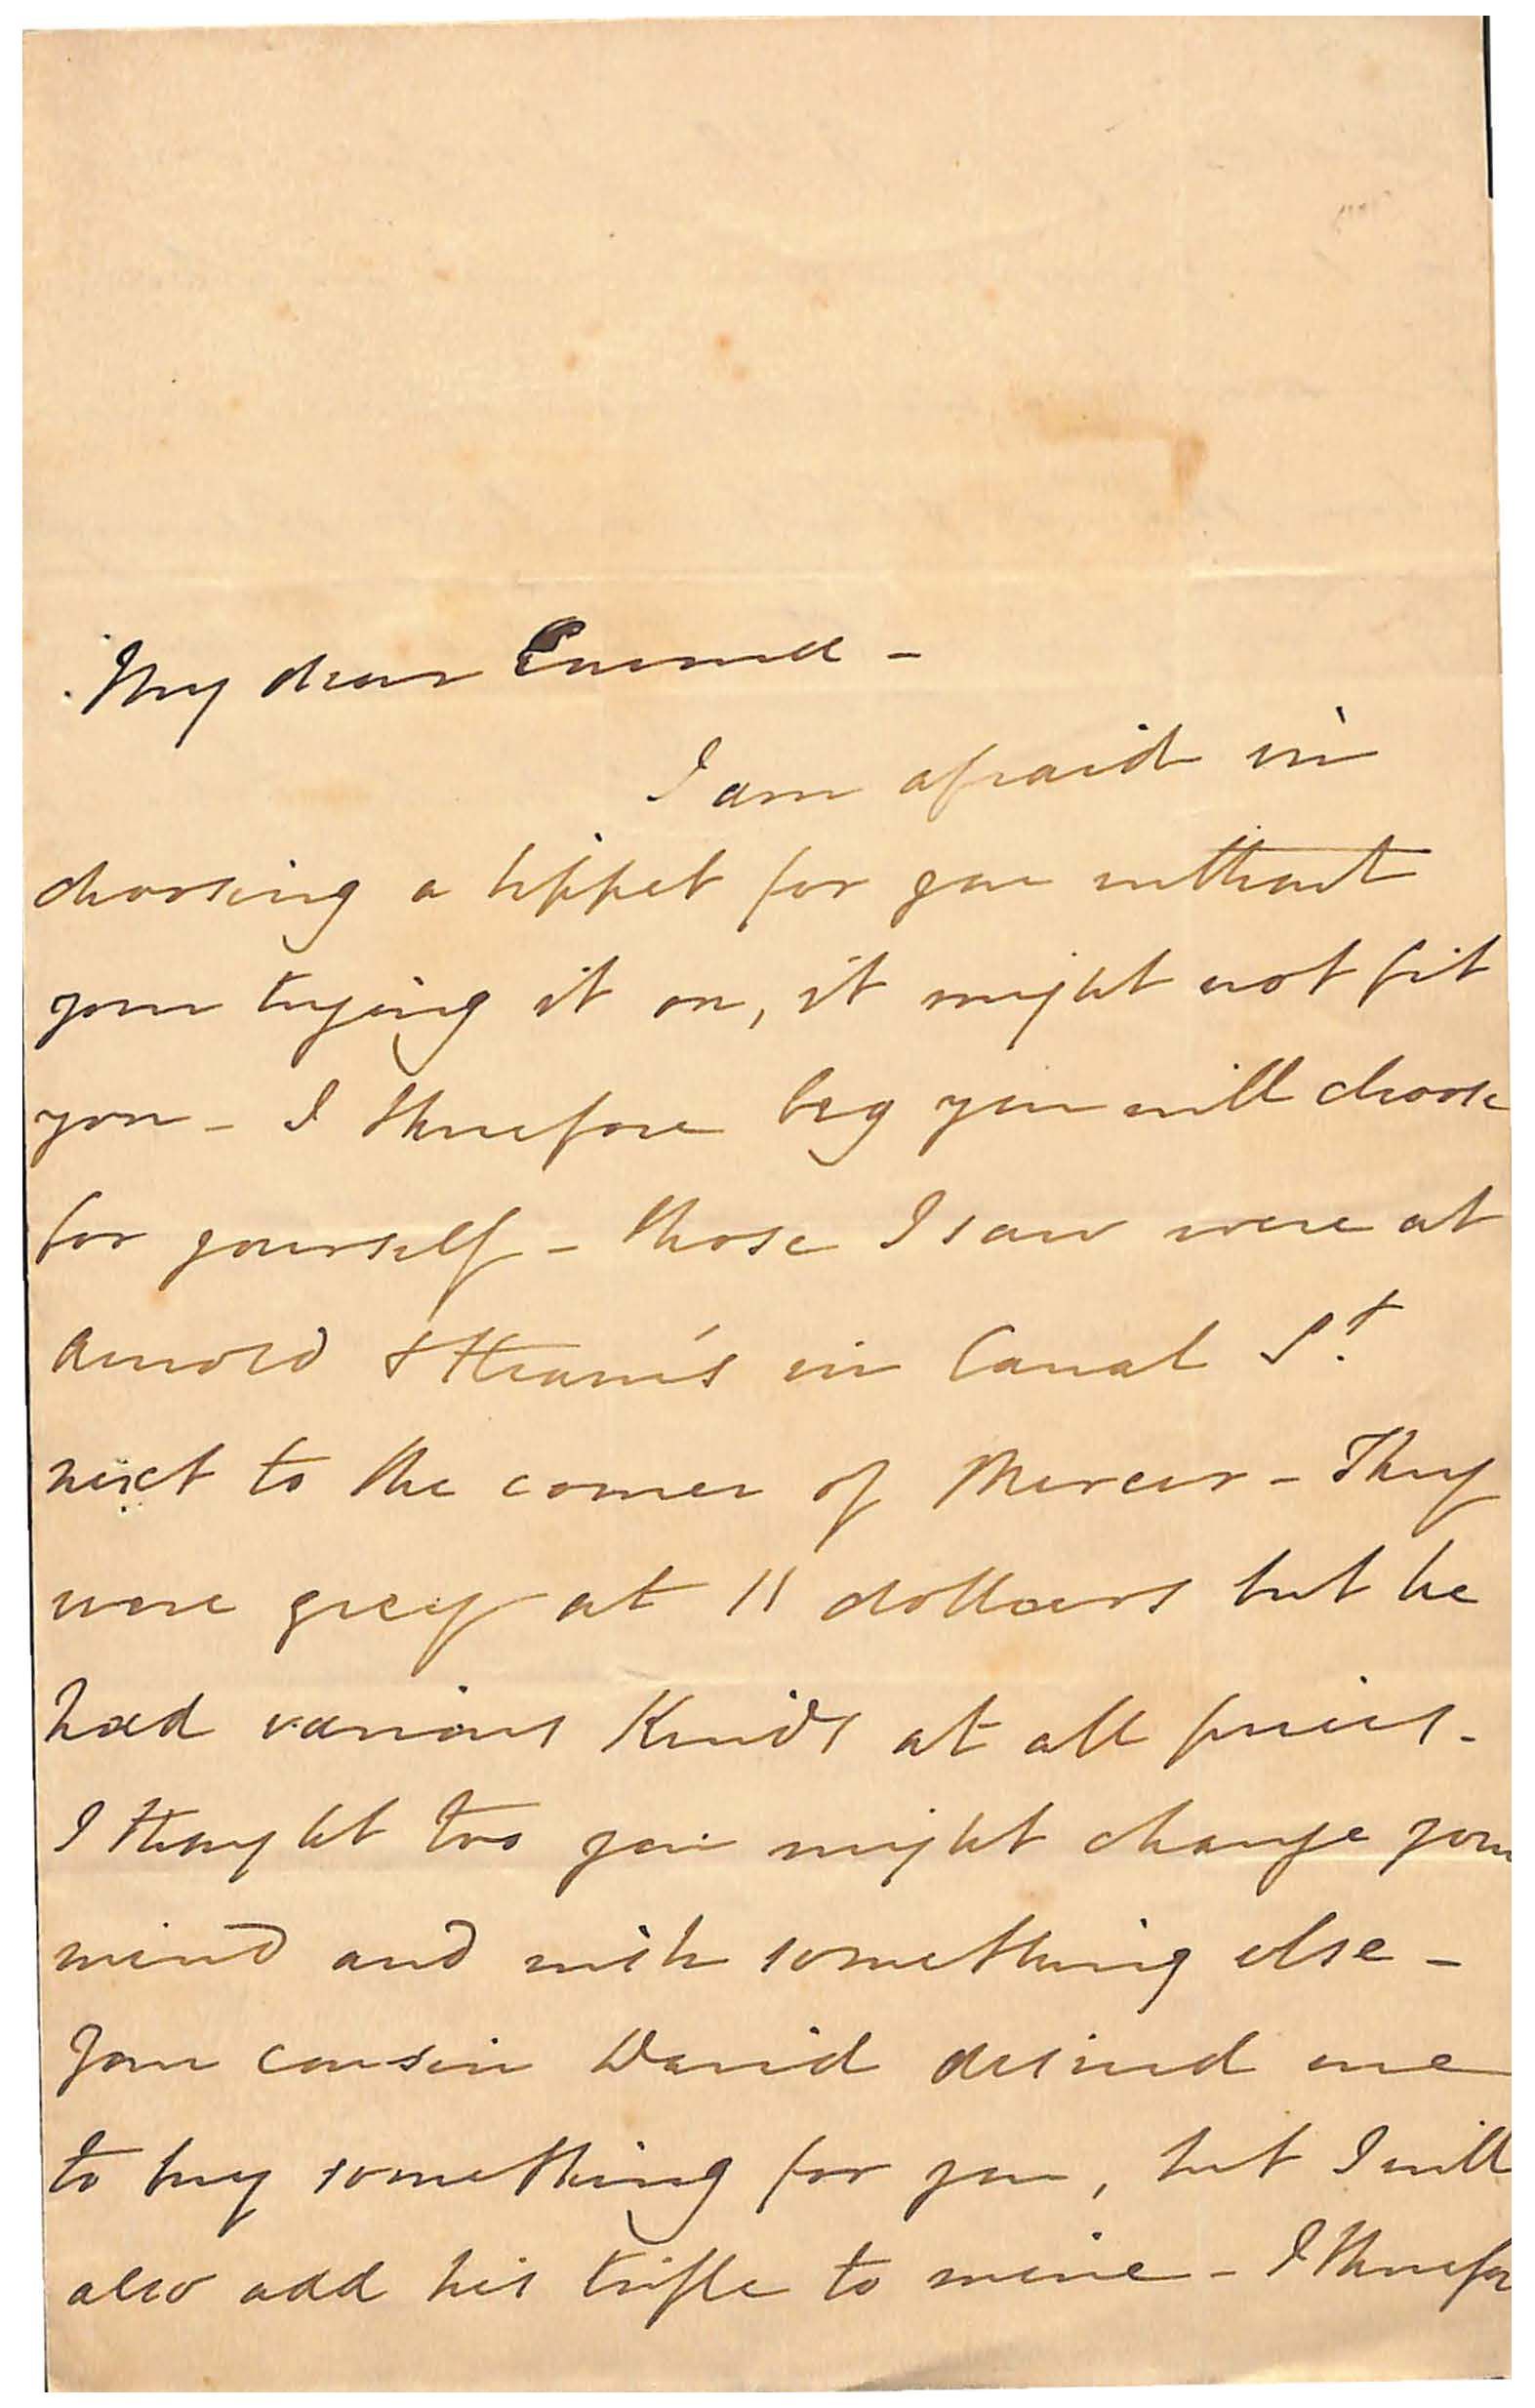 My dear Emma -
I am afraid in
choosing a tippet for you without
your trying it on, it might not fit
you - I therefore beg you will choose
for yourself - those I saw were at
Arnold & Hearn's in Canal St.
next to the corner of Mercer - They
were grey at 11 dollars but he
had various Kinds at all prices -
I thought too you might change your
mind and wish something else -
Your cousin David desired me
to buy something for you, but I will
also add his trifle to mine - I therefor